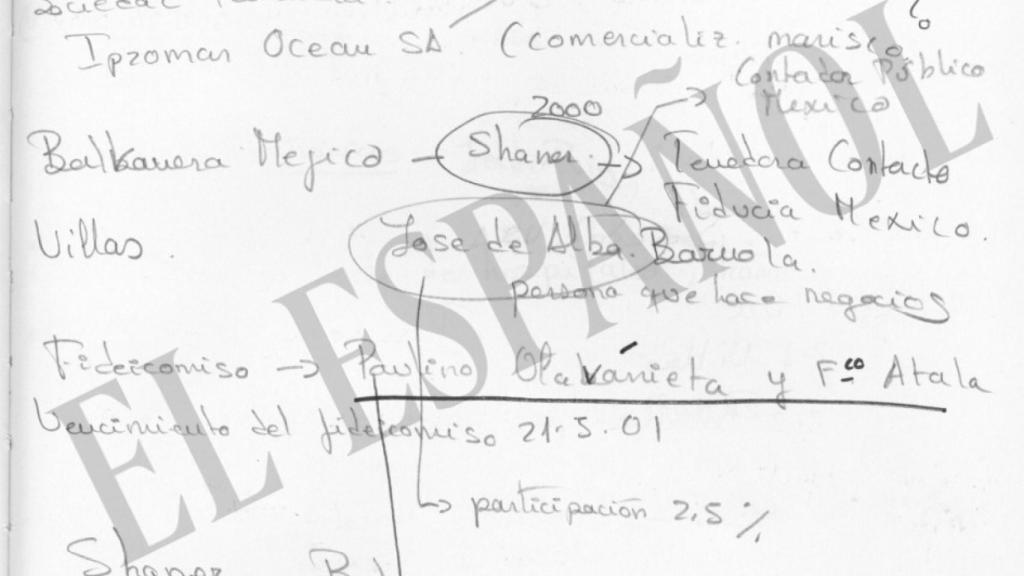 Ipzoman Ocean SA (comercializ. marisco
?
Contador Público
Mexico
2000
Balkanera Mejico – Shaner → Tenedora Contacto
Fiducia Mexico.
Villas.
Jose de Alba. Baruola.
persona que hace negocios
Fideicomiso → Paulino Olavárrieta y Fco Atala
Vencimiento del fideicomiso 21.5.01
→ participación 2,5 %
Shaner
EL ESPAÑOL